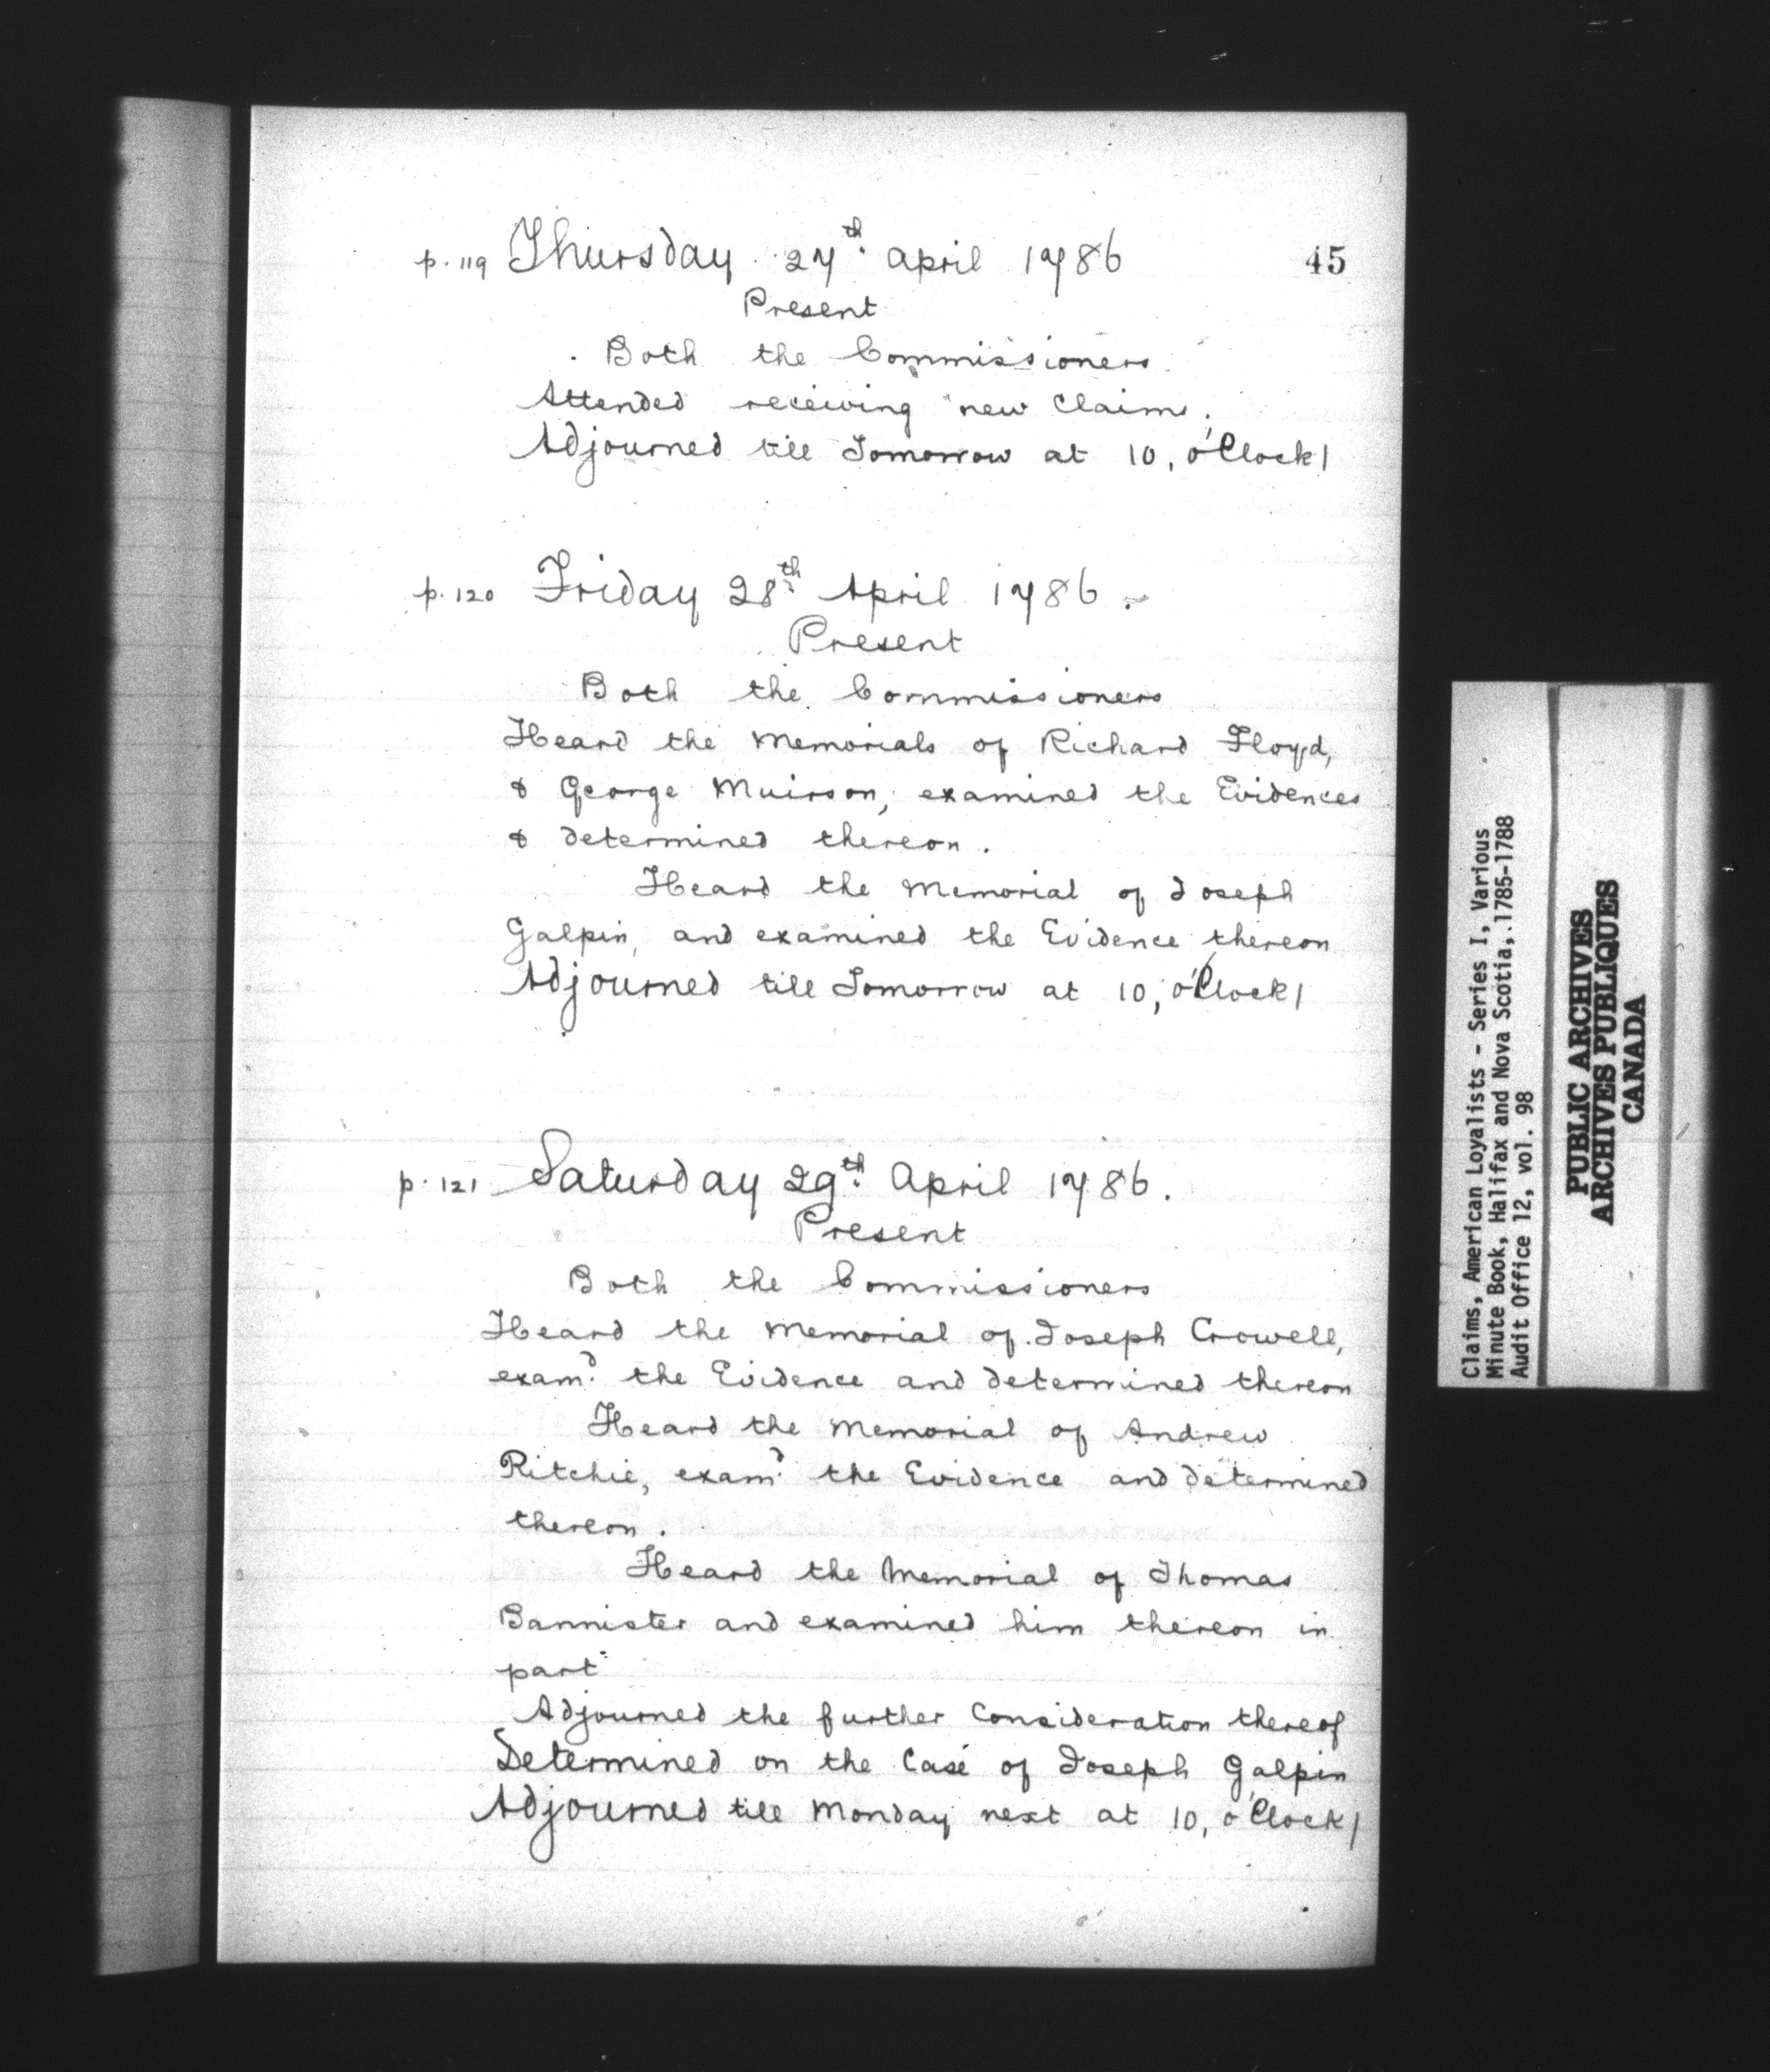 p. 119 Thursday 27th. April 1786 45
Present
Both the Commissioners
Attended receiving new Claims.
Adjourned till Tomorrow at 10, o'Clock/
p. 120 Friday 28th. April 1786.
Present
Both the Commissioners
Heard the Memorials of Richard Floyd,
& George Muirson, examined the Evidences
& determined thereon.
Heard the Memorial of Joseph
Galpin, and examined the Evidence thereon
Adjourned till Tomorrow at 10, o'Clock/
p. 121 Saturday 29th. April 1786.
Present
Both the Commissioners
Heard the Memorial of Joseph Crowell,
examd. the Evidence and determined thereon
Heard the Memorial of Andrew
Ritchie, examd. the Evidence and determined
thereon.
Heard the Memorial of Thomas
Bannister and examined him thereon in
part
Adjourned the further Consideration thereof
Determined on the Case of Joseph Galpin
Adjourned till Monday next at 10, o'Clock/
Claims, American Loyalists - Series I, Various
Minute Book, Halifax and Nova Scotia, 1785-1788
Audit Office 12, vol. 98
PUBLIC ARCHIVES
ARCHIVES PUBLIQUES
CANADA